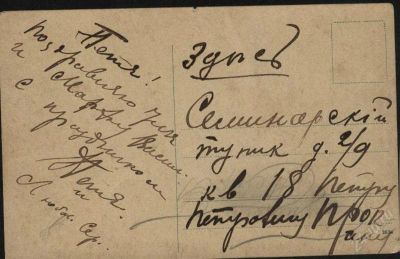 Петя!
поздравляю тебя
и Марью Васил.
с праздником
Женя.
и
Любовь Сер.
Здѣсь
Семинарскій
тупик д. 2/9
кв 18 Петру
Петровичу